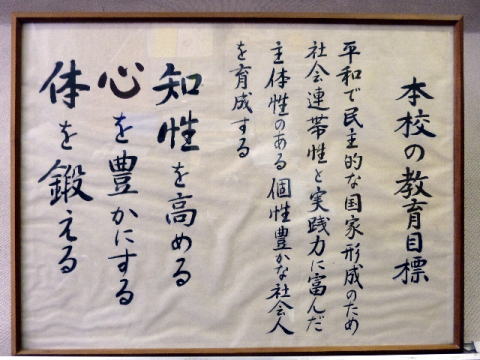 本校の教育目標
平和で民主的な国家形成のため
社会連帯性と実践力に富んだ
主体性のある個性豊かな社会人
を育成する
知性を高める
心を豊かにする
体を鍛える